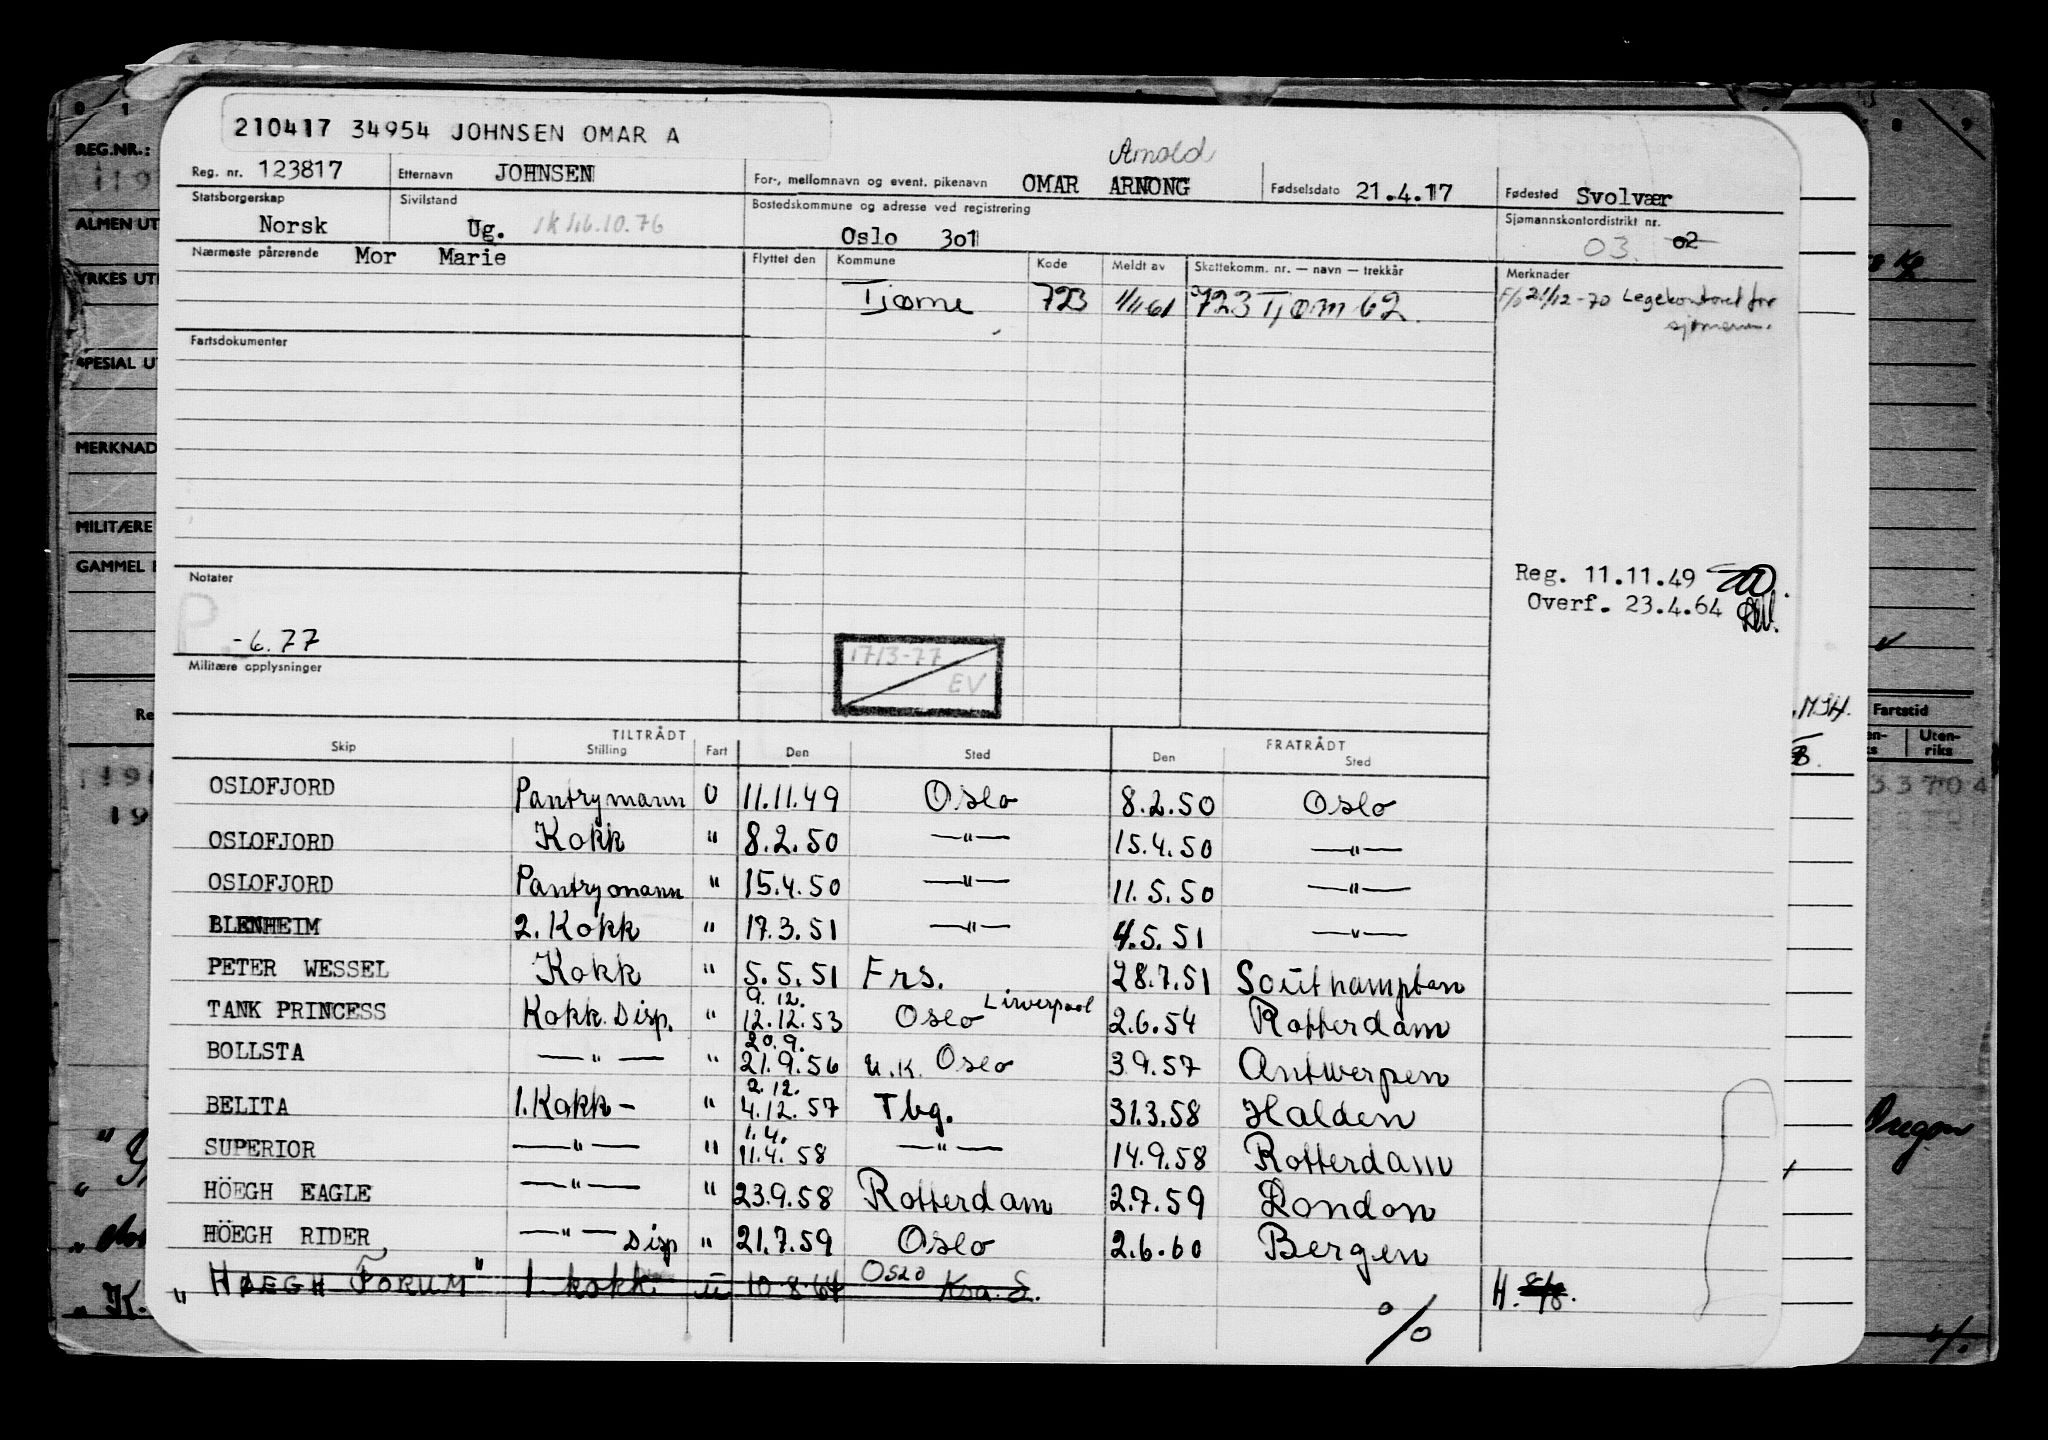 210417 34954 JOHNSEN OMAR A
Reg. nr. 123817 Etternavn JOHNSEN For-, mellomnavn og event. pikenavn OMAR ARNONG Arnold Fødselsdato 21.4.17 Fødested Svolvær
Statsborgerskap Norsk Sivilstand Ug. 16.10.76 Bostedskommune og adresse ved registrering Oslo 301 Sjømannskontordistrikt nr. 03. 02
Nærmeste pårørende Mor Marie Flyttet den Kommune Kode Meldt av Skattekomm. nr. — navn — trekkår Merknader
Tjøme 723 1/1 61 723 Tjøm 62. 21/12-70 Legekontoret for
sjømenn.
Fartsdokumenter
Notater
P
-6.77
Militære opplysninger
17/3-77
EV
Reg. 11.11.49
Overf. 23.4.64
TILTRÅDT FRATRÅDT
Skip Stilling Fart Den Sted Den Sted
OSLOFJORD Pantrymann U 11.11.49 Oslo 8.2.50 Oslo
OSLOFJORD Kokk " 8.2.50 —"— 15.4.50 —"—
OSLOFJORD Pantrymann " 15.4.50 —"— 11.5.50 —"—
BLENHEIM 2. Kokk " 17.3.51 —"— 4.5.51 —"—
PETER WESSEL Kokk " 5.5.51 Frs. 28.7.51 Southampton
TANK PRINCESS Kokk. Disp. " 9.12. 12.12.53 Oslo Liverpool 2.6.54 Rotterdam
BOLLSTA —"— " 20.9. 21.9.56 U.K. Oslo 3.9.57 Antwerpen
BELITA 1. Kokk — " 2.12. 4.12.57 Tbg. 31.3.58 Halden
SUPERIOR —"— " 1.4. 11.4.58 —"— 14.9.58 Rotterdam
HÖEGH EAGLE —"— " 23.9.58 Rotterdam 2.7.59 London
HÖEGH RIDER —"— Disp " 21.7.59 Oslo 2.6.60 Bergen
" HØEGH FORUM" 1. kokk u 10.8.64 Oslo H.
%
REG.NR.:
ALMEN UT
YRKES UT
SPESIAL U
MERKNAD
MILITÆRE
GAMMEL
Fartstid
Uten-
riks
33704
Oregon